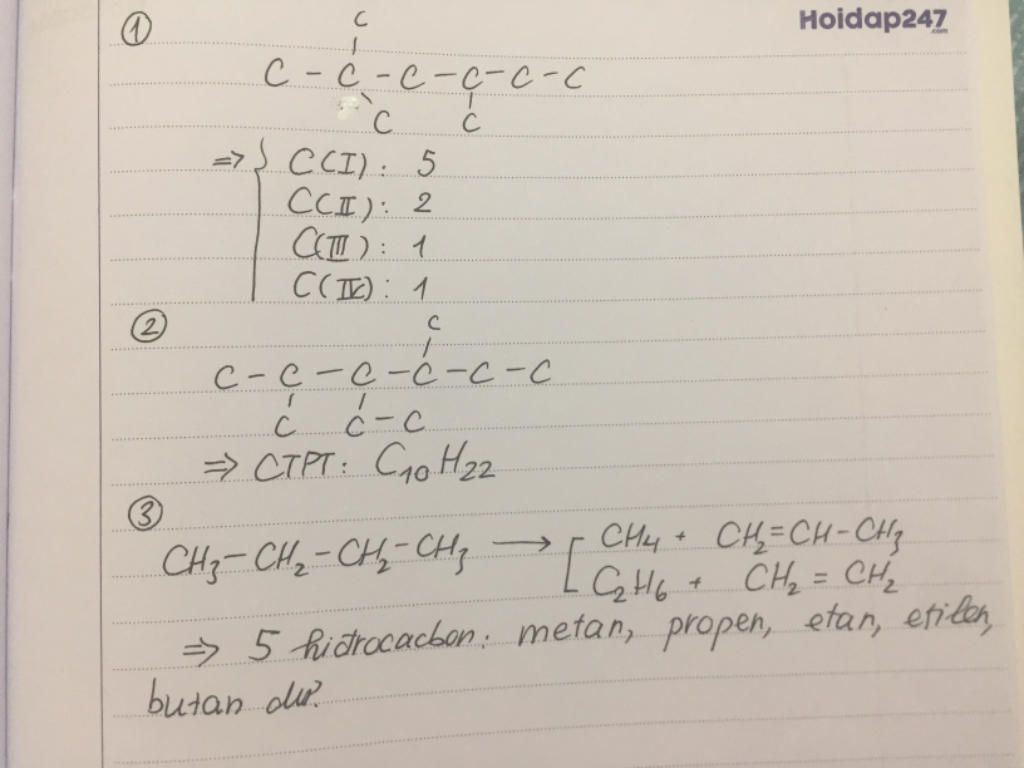 Hoidap247
.com
①
C
C - C - C - C - C - C
C C
=> { C(I): 5
C(II): 2
C(III): 1
C(IV): 1
②
C
C - C - C - C - C - C
C C - C
=> CTPT: C₁₀H₂₂
③
CH₃ - CH₂ - CH₂ - CH₃ → [ CH₄ + CH₂ = CH - CH₃
C₂H₆ + CH₂ = CH₂
=> 5 hidrocacbon: metan, propen, etan, etilen,
butan dư.